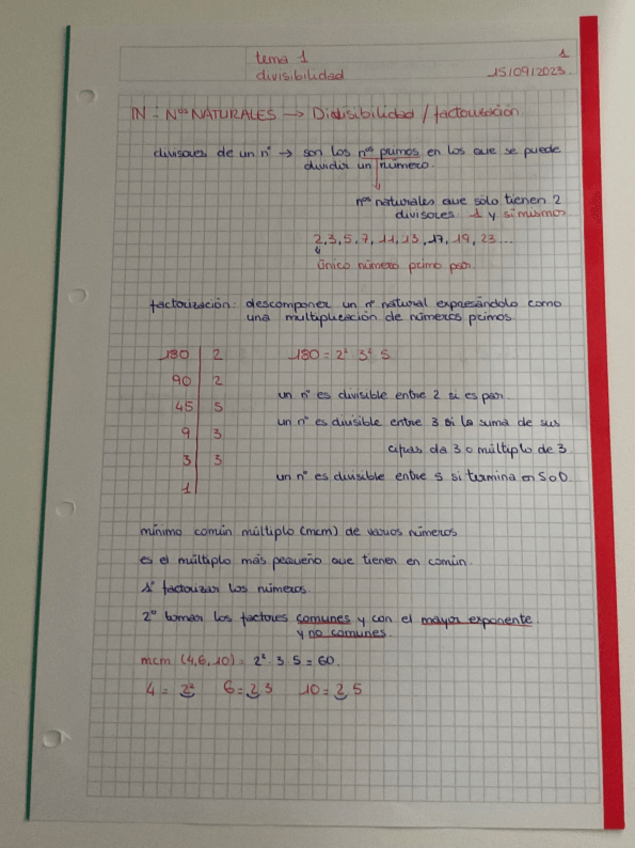 tema 1 1
divisibilidad 15/09/2023
IN: Nºs NATURALES → Divisibilidad / factorización
divisores de un nº → son los nºs primos en los que se puede
dividir un número.
nºs naturales que solo tienen 2
divisores: 1 y si mismos
2, 3, 5, 7, 11, 13, 17, 19, 23...
único número primo par.
factorización: descomponer un nº natural expresándolo como
una multiplicación de números primos.
180 | 2 180 = 2² · 3² · 5
90 | 2
un nº es divisible entre 2 si es par.
45 | 5
un nº es divisible entre 3 si la suma de sus
9 | 3
cifras da 3 o múltiplo de 3
3 | 3
un nº es divisible entre 5 si termina en 5 o 0.
1 |
mínimo común múltiplo (mcm) de varios números
es el múltiplo más pequeño que tienen en común.
1º factorizar los números.
2º tomar los factores comunes y con el mayor exponente
y no comunes.
mcm (4, 6, 10) = 2² · 3 · 5 = 60.
4 = 2² 6 = 2·3 10 = 2·5